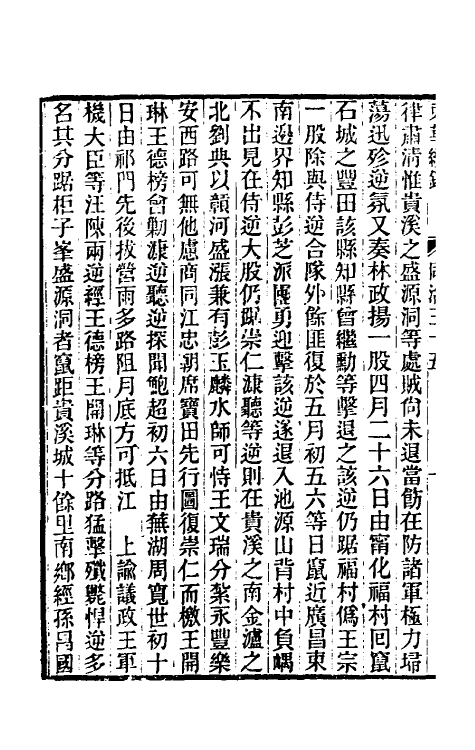 律肅清惟貴溪之盛源洞等處賊尙未退當飭在防諸軍極力埽
蕩迅殄逆氛又奏林政揚一股四月二十六日由甯化福村回竄
石城之豐田該縣知縣曾繼勳等擊退之該逆仍踞福村僞王宗
一股除與侍逆合隊外餘匪復於五月初五六等日竄近廣昌東
南邊界知縣彭芝派團勇迎擊該逆遂退入池源山背村中負嵎
不出見在侍逆大股仍踞崇仁漮聽等逆則在貴溪之南金瀘之
北劉典以顏河盛漲兼有彭玉麟水師可恃王文瑞分紮永豐樂
安西路可無他慮商同江忠朝席寶田先行圖復崇仁而檄王開
琳王德榜會勦漮逆聽逆探聞鮑超初六日由蕪湖周寬世初十
日由祁門先後拔營雨多路阻月底方可抵江　上諭議政王軍
機大臣等汪陳兩逆經王德榜王開琳等分路猛擊殲斃悍逆多
名其分踞柜子峯盛源洞者竄距貴溪城十餘里南鄉經孫昌國